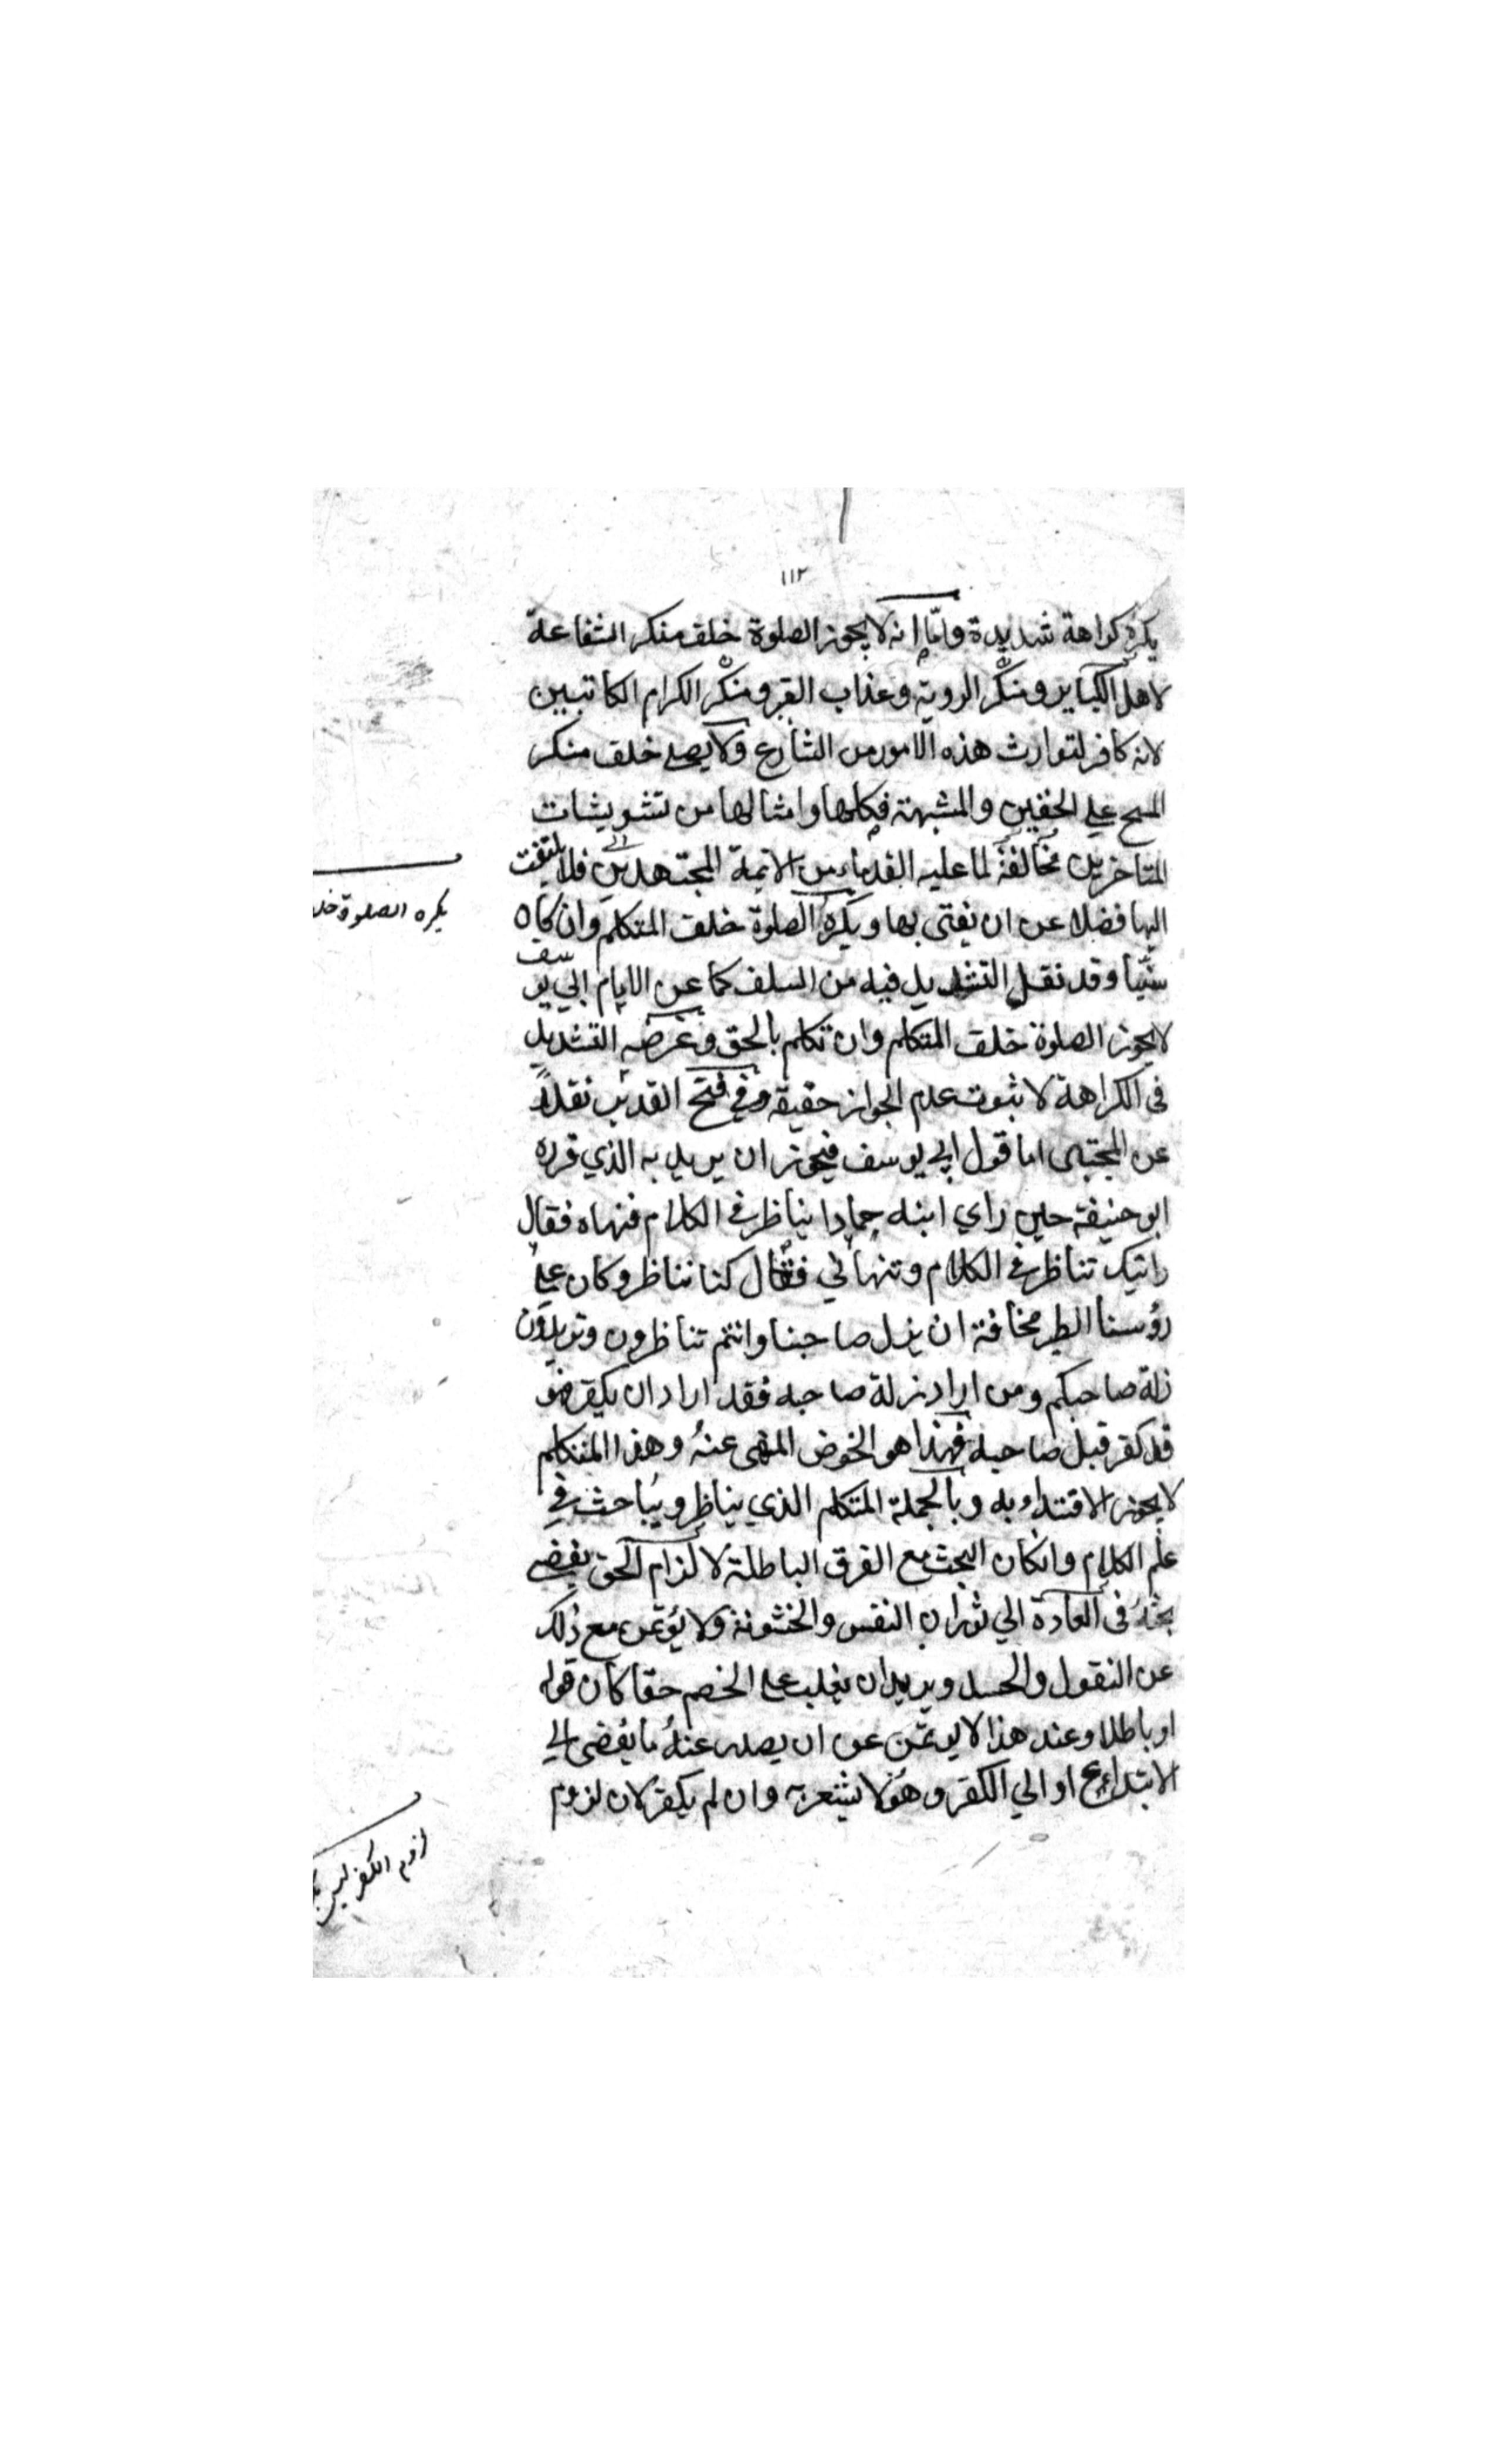 ١١٢
يكره كراهة شديدة واما انه لا يجوز الصلوة خلف منكر الشفاعة
لاهل الكباير ومنكر الروية وعذاب القبر ومنكر الكرام الكاتبين
لانه كافر لتوارث هذه الامور من الشارع ولا يصلى خلف منكر
المسح علي الخفين والمشبهة فكلها وامثالها من تشويشات
المتاخرين مخالفة لما عليه القدماء من الائمة المجتهدين فلا يلتفت
اليها فضلا عن ان يفتى بها ويكره الصلوة خلف المتكلم وان كان
سنيا وقد نقل التشديد فيه من السلف كما عن الامام ابي يوسف
لا يجوز الصلوة خلف المتكلم وان تكلم بالحق وغرضه التشديد
في الكراهة لا ثبوت عدم الجواز حقيقة وفي فتح القدير نقلا
عن المجتبى اما قول ابي يوسف فيجوز ان يريد به الذي قرره
ابو حنيفة حين راي ابنه حمادا يناظر في الكلام فنهاه فقال
رايتك تناظر في الكلام وتنهاني فقال كنا نناظر وكان علي
رؤسنا الطير مخافة ان يزل صاحبنا وانتم تناظرون وتريدون
زلة صاحبكم ومن اراد زلة صاحبه فقد اراد ان يكفر فهو
قد كفر قبل صاحبه فهذا هو الخوض المنهى عنه وهذا المتكلم
لا يجوز الاقتداء به وبالجملة المتكلم الذي يناظر ويباحث في
علم الكلام وانكان البحث مع الفرق الباطلة لالزام الحق يفضي
بحثه في العادة الي ثوران النفس والخشونة ولا يؤتمن مع ذلك
عن النقول والحسد ويريد ان يغلب على الخصم حقا كان قوله
او باطلا وعند هذا لا يؤتمن عن ان يصدر عنه ما يفضى الي
الابتداع او الي الكفر وهو لا يشعر به وان لم يكفر لان لزوم
يكره الصلوة
لزوم الكفر ليس